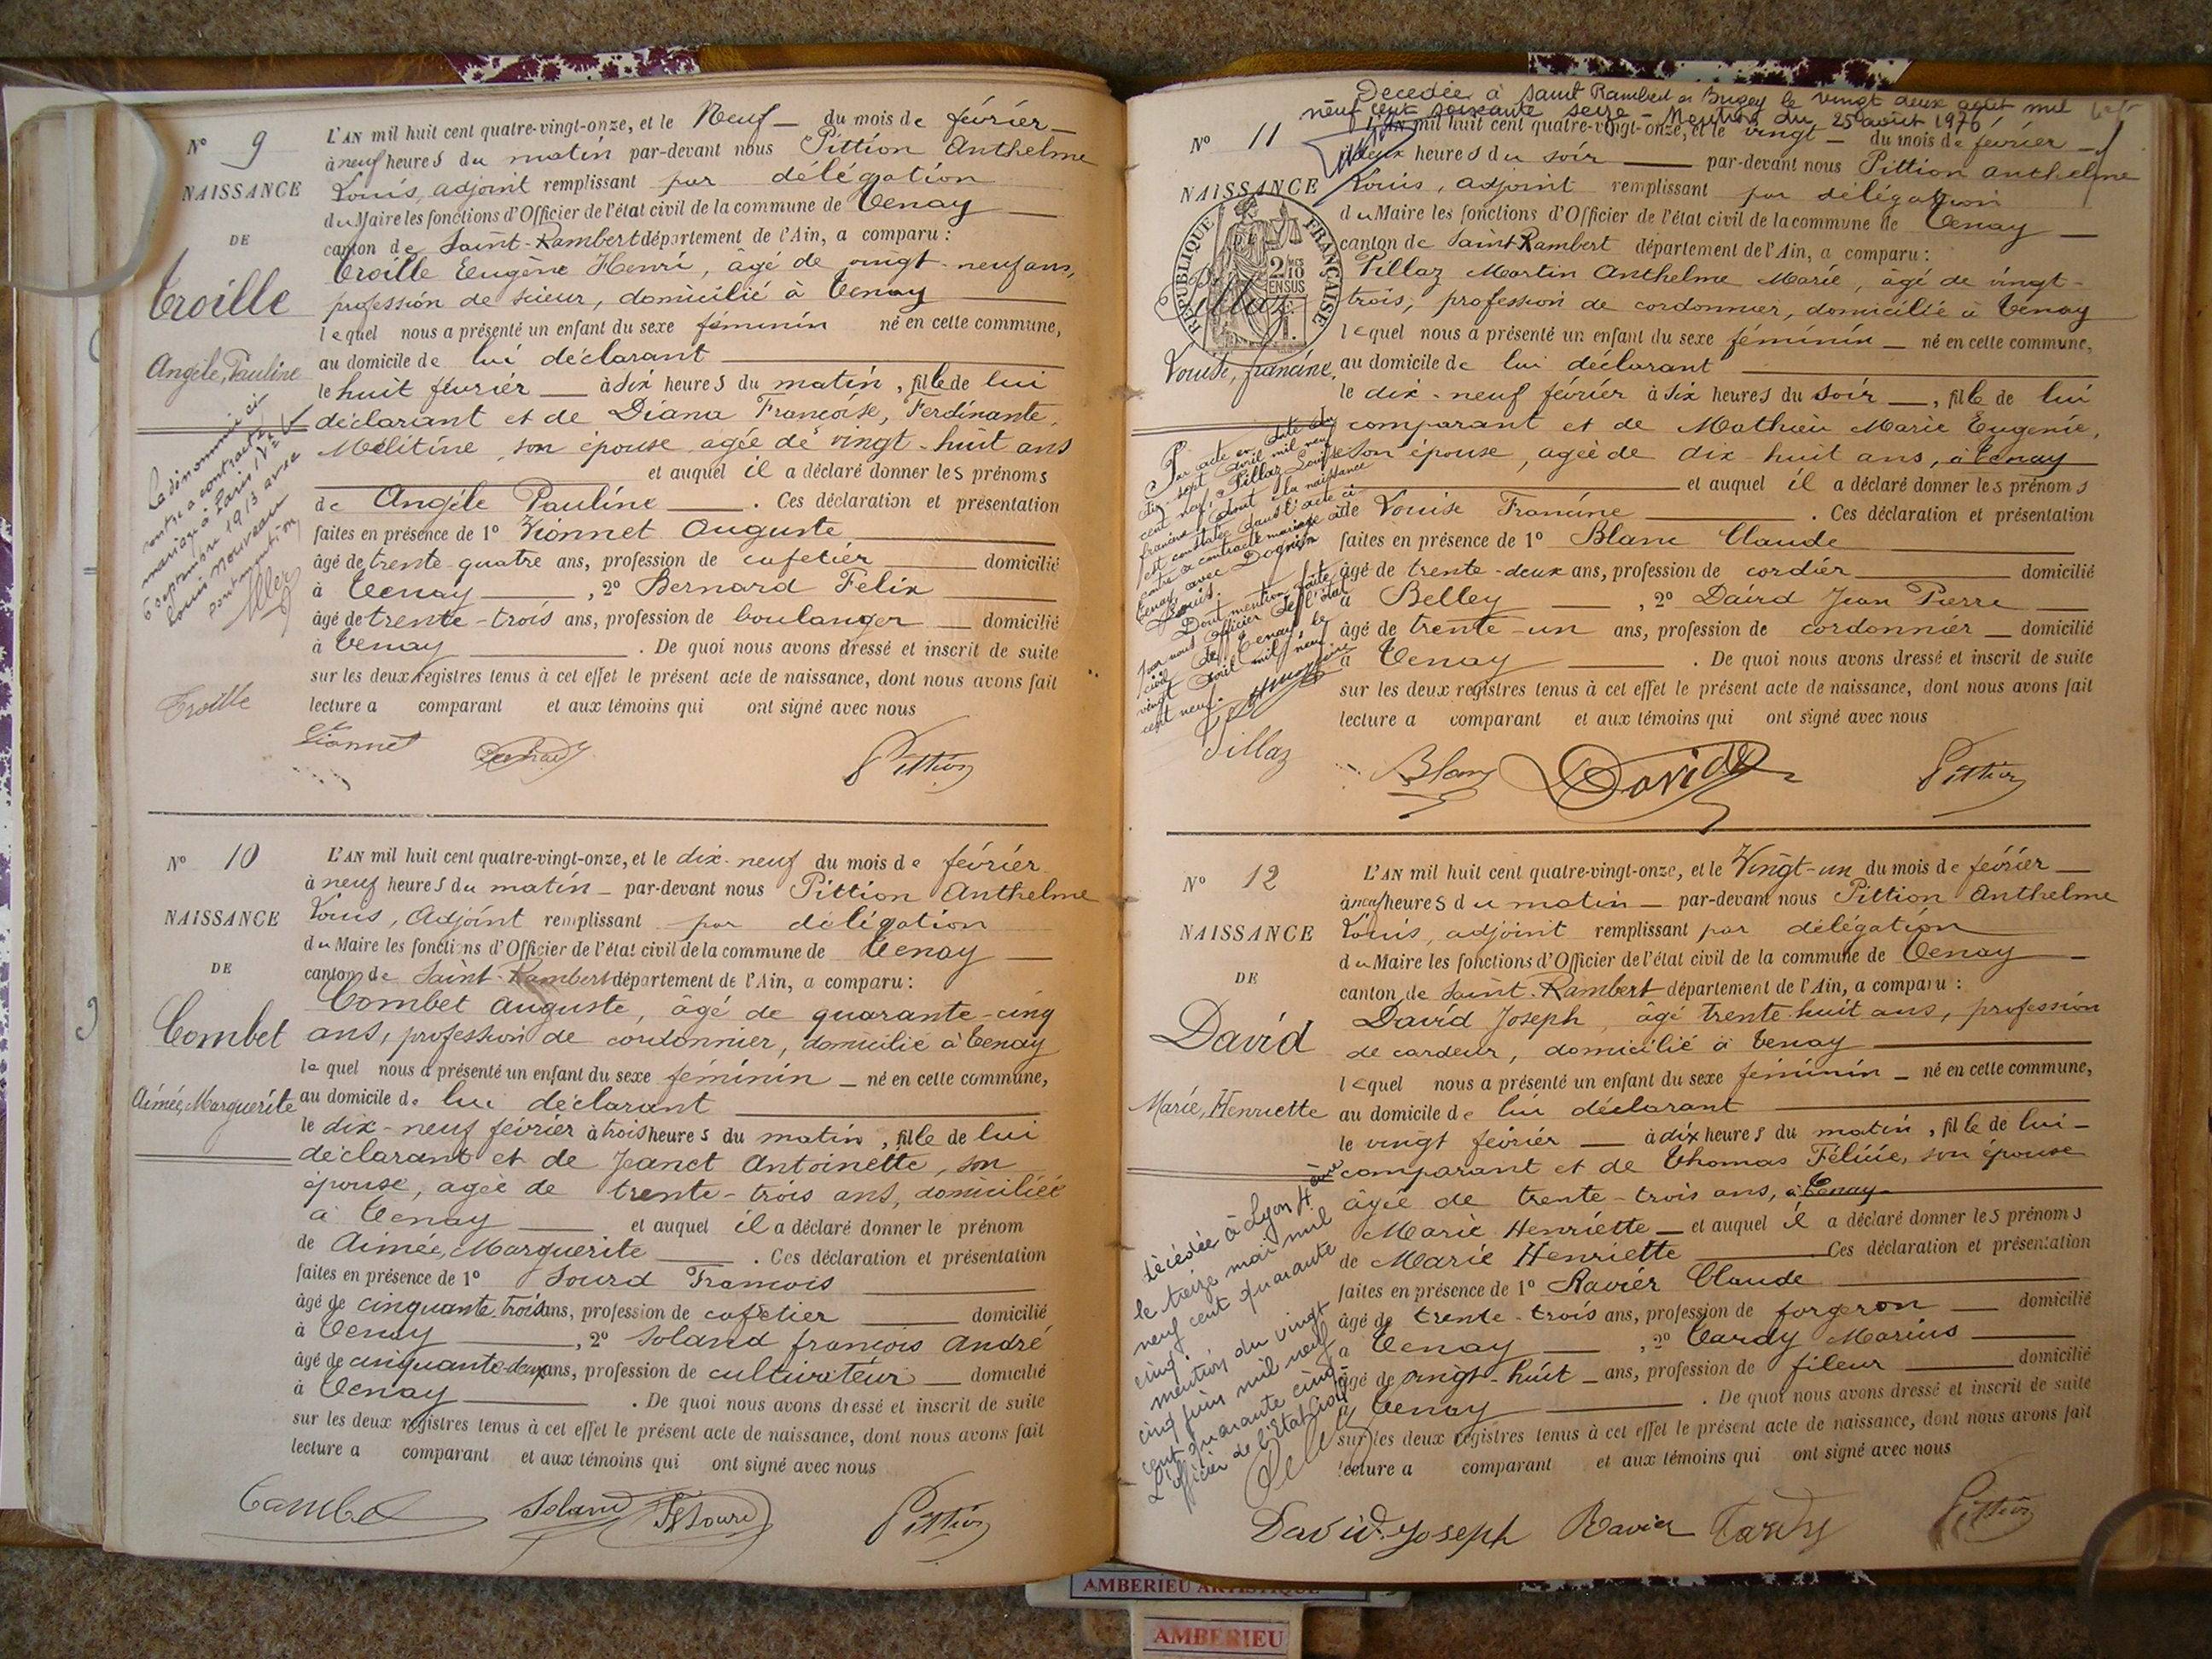 N° 9
NAISSANCE
DE
Troille
Angèle, Pauline
L'AN mil huit cent quatre-vingt-onze, et le Neuf du mois de février
à neuf heures du matin par-devant nous Pittion Anthelme
Louis, adjoint remplissant par délégation
du Maire les fonctions d'Officier de l'état civil de la commune de Tenay
canton de Saint-Rambert département de l'Ain, a comparu :
Troille Eugène Henri, âgé de vingt-neuf ans,
profession de scieur, domicilié à Tenay
lequel nous a présenté un enfant du sexe féminin né en cette commune,
au domicile de lui déclarant
le huit février à six heures du matin, fille de lui
déclarant et de Diana Françoise, Ferdinante,
Mélitine, son épouse agée de vingt-huit ans
et auquel il a déclaré donner les prénoms
de Angèle Pauline . Ces déclaration et présentation
faites en présence de 1° Vionnet Auguste
âgé de trente-quatre ans, profession de cafetier domicilié
à Tenay , 2° Bernard Felix
âgé de trente-trois ans, profession de boulanger domicilié
à Tenay . De quoi nous avons dressé et inscrit de suite
sur les deux registres tenus à cet effet le présent acte de naissance, dont nous avons fait
lecture a comparant et aux témoins qui ont signé avec nous
La dénommée ci
contre a contracté
mariage à Paris
6 septembre 1913 avec
Louis Nouveau
pour mention
Troille
Vionnet
Bernard
Pittion
N° 10
NAISSANCE
DE
Combet
Aimée, Marguerite
L'AN mil huit cent quatre-vingt-onze, et le dix-neuf du mois de février
à neuf heures du matin par-devant nous Pittion Anthelme
Louis, Adjoint remplissant par délégation
du Maire les fonctions d'Officier de l'état civil de la commune de Tenay
canton de Saint-Rambert département de l'Ain, a comparu :
Combet Auguste, âgé de quarante-cinq
ans, profession de cordonnier, domicilié à Tenay
lequel nous a présenté un enfant du sexe féminin né en cette commune,
au domicile de lui déclarant
le dix-neuf février à trois heures du matin, fille de lui
déclarant et de Janet Antoinette, son
épouse, agée de trente-trois ans, domiciliée
à Tenay et auquel il a déclaré donner le prénom
de Aimée, Marguerite . Ces déclaration et présentation
faites en présence de 1° Sourd Francois
âgé de cinquante-trois ans, profession de cafetier domicilié
à Tenay , 2° Soland françois André
âgé de cinquante-deux ans, profession de cultivateur domicilié
à Tenay . De quoi nous avons dressé et inscrit de suite
sur les deux registres tenus à cet effet le présent acte de naissance, dont nous avons fait
lecture a comparant et aux témoins qui ont signé avec nous
Combet
Soland
Sourd
Pittion
Decedée à Saint Rambert en Bugey le vingt deux août mil
neuf cent soixante seize - Mention du 25 août 1976
N° 11
NAISSANCE
DE
Pillaz
Louise, francine
RÉPUBLIQUE FRANÇAISE
L'AN mil huit cent quatre-vingt-onze, et le vingt du mois de février
à deux heures du soir par-devant nous Pittion Anthelme
Louis, adjoint remplissant par délégation
du Maire les fonctions d'Officier de l'état civil de la commune de Tenay
canton de Saint Rambert département de l'Ain, a comparu :
Pillaz Martin Anthelme Marie, âgé de vingt-
trois, profession de cordonnier, domicilié à Tenay
lequel nous a présenté un enfant du sexe féminin né en cette commune,
au domicile de lui déclarant
le dix-neuf février à six heures du soir, fille de lui
comparant et de Mathieu Marie Eugénie,
son épouse, agée de dix-huit ans, à Tenay
et auquel il a déclaré donner les prénoms
de Louise Francine . Ces déclaration et présentation
faites en présence de 1° Blanc Claude
âgé de trente-deux ans, profession de cordier domicilié
à Belley , 2° David Jean Pierre
âgé de trente-un ans, profession de cordonnier domicilié
à Tenay . De quoi nous avons dressé et inscrit de suite
sur les deux registres tenus à cet effet le présent acte de naissance, dont nous avons fait
lecture a comparant et aux témoins qui ont signé avec nous
Par acte en date du
dix sept avril mil neuf
cent neuf, Pillaz Louise
francine dont la naissance
est constatée dans l'acte ci
contre a contracté mariage à
Tenay avec
Louis.
Dont mention faite
par nous officier de l'état
civil de Tenay le
vingt avril mil neuf
cent neuf.
Pillaz
Blanc
David
Pittion
N° 12
NAISSANCE
DE
David
Marie, Henriette
L'AN mil huit cent quatre-vingt-onze, et le Vingt-un du mois de février
à neuf heures du matin par-devant nous Pittion Anthelme
Louis, adjoint remplissant par délégation
du Maire les fonctions d'Officier de l'état civil de la commune de Tenay
canton de Saint-Rambert département de l'Ain, a comparu :
David Joseph, âgé trente-huit ans, profession
de cardeur, domicilié à Tenay
lequel nous a présenté un enfant du sexe féminin né en cette commune,
au domicile de lui déclarant
le vingt février à dix heures du matin, fille de lui
comparant et de Thomas Félicie, son épouse
âgée de trente-trois ans, à Tenay
Marie Henriette et auquel il a déclaré donner les prénoms
de Marie Henriette Ces déclaration et présentation
faites en présence de 1° Ravier Claude
âgé de trente-trois ans, profession de forgeron domicilié
à Tenay , 2° Tardy Marius
âgé de vingt-huit ans, profession de fileur domicilié
à Tenay . De quoi nous avons dressé et inscrit de suite
sur les deux registres tenus à cet effet le présent acte de naissance, dont nous avons fait
lecture a comparant et aux témoins qui ont signé avec nous
décédée à Lyon 4ème
le treize mai mil
neuf cent quarante
cinq
mention du vingt
cinq juin mil neuf
cent quarante cinq
L'officier de l'Etat Civil
David Joseph
Ravier
Tardy
Pittion
AMBERIEU ARTISTIQUE
AMBERIEU